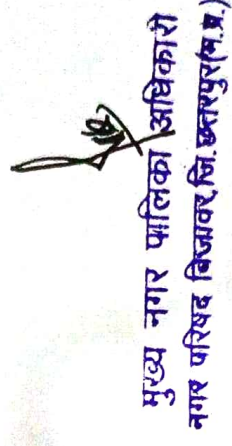 मुख्य नगर पालिका अधिकारी
नगर परिषद बिजावर जि. छतरपुर (म.प्र.)